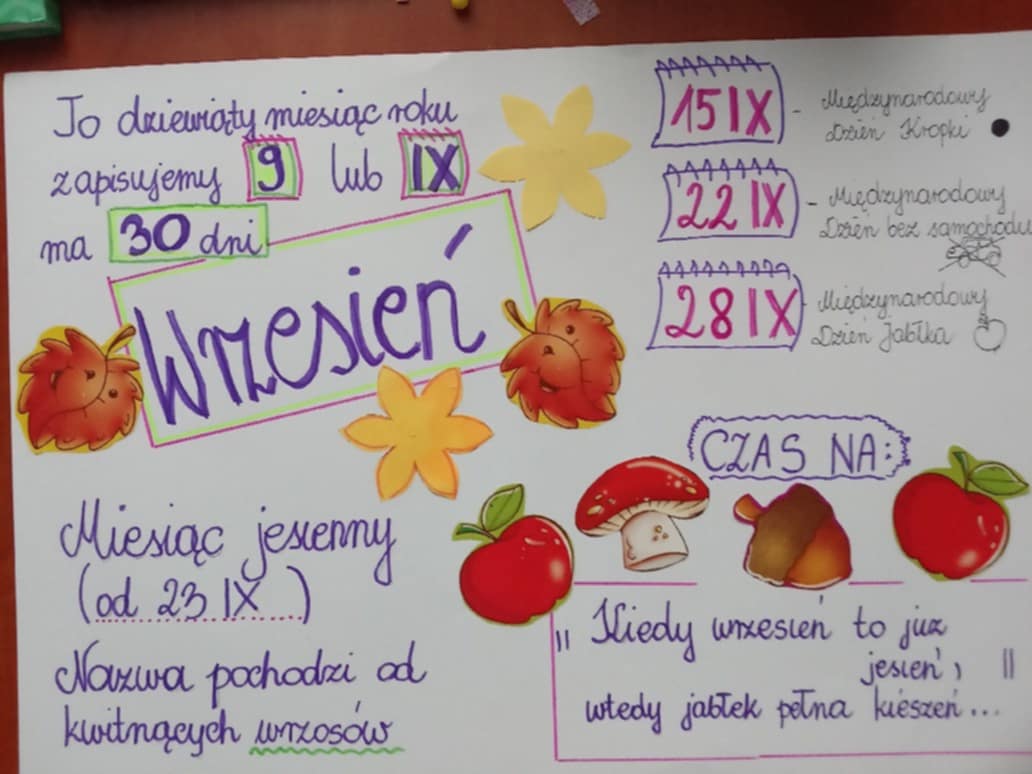 To dziewiąty miesiąc roku
zapisujemy 9 lub IX
ma 30 dni
Wrzesień
15 IX - Międzynarodowy
Dzień Kropki
22 IX - Międzynarodowy
Dzień bez samochodu
28 IX - Międzynarodowy
Dzień Jabłka
CZAS NA:
Miesiąc jesienny
(od 23 IX)
Nazwa pochodzi od
kwitnących wrzosów
"Kiedy wrzesień to już
jesień,
wtedy jabłek pełna kieszeń..."